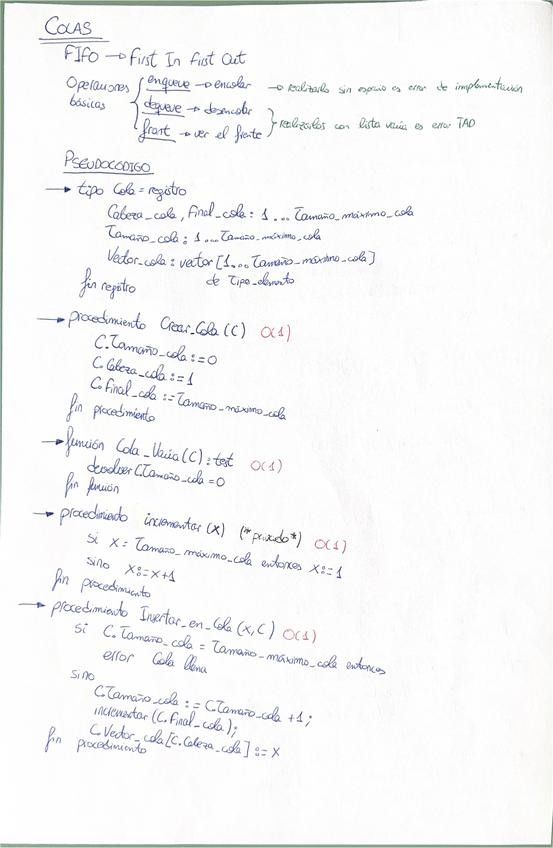 COLAS
FIFO → First In First Out
Operaciones básicas
enqueve → encolar → realizarlo sin espacio es error de implementación
dequeve → desencolar
front → ver el frente
realizarlos con lista vacía es error TAD
PSEUDOCÓDIGO
→ tipo Cola = registro
Cabeza_cola, Final_cola : 1 ... Tamaño_máximo_cola
Tamaño_cola : 1 ... Tamaño_máximo_cola
Vector_cola : vector [1... Tamaño_máximo_cola]
de Tipo_elemento
fin registro
→ procedimiento Crear_Cola (C) O(1)
C.Tamaño_cola := 0
C.Cabeza_cola := 1
C.Final_cola := Tamaño_máximo_cola
fin procedimiento
→ función Cola_Vacía (C) : test O(1)
devolver C.Tamaño_cola = 0
fin función
→ procedimiento incrementar (x) (*privado*) O(1)
si x = Tamaño_máximo_cola entonces x := 1
sino x := x+1
fin procedimiento
→ procedimiento Insertar_en_Cola (x, C) O(1)
si C.Tamaño_cola = Tamaño_máximo_cola entonces
error Cola llena
sino
C.Tamaño_cola := C.Tamaño_cola + 1;
incrementar (C.Final_cola);
C.Vector_cola [C.Cabeza_cola] := x
fin procedimiento